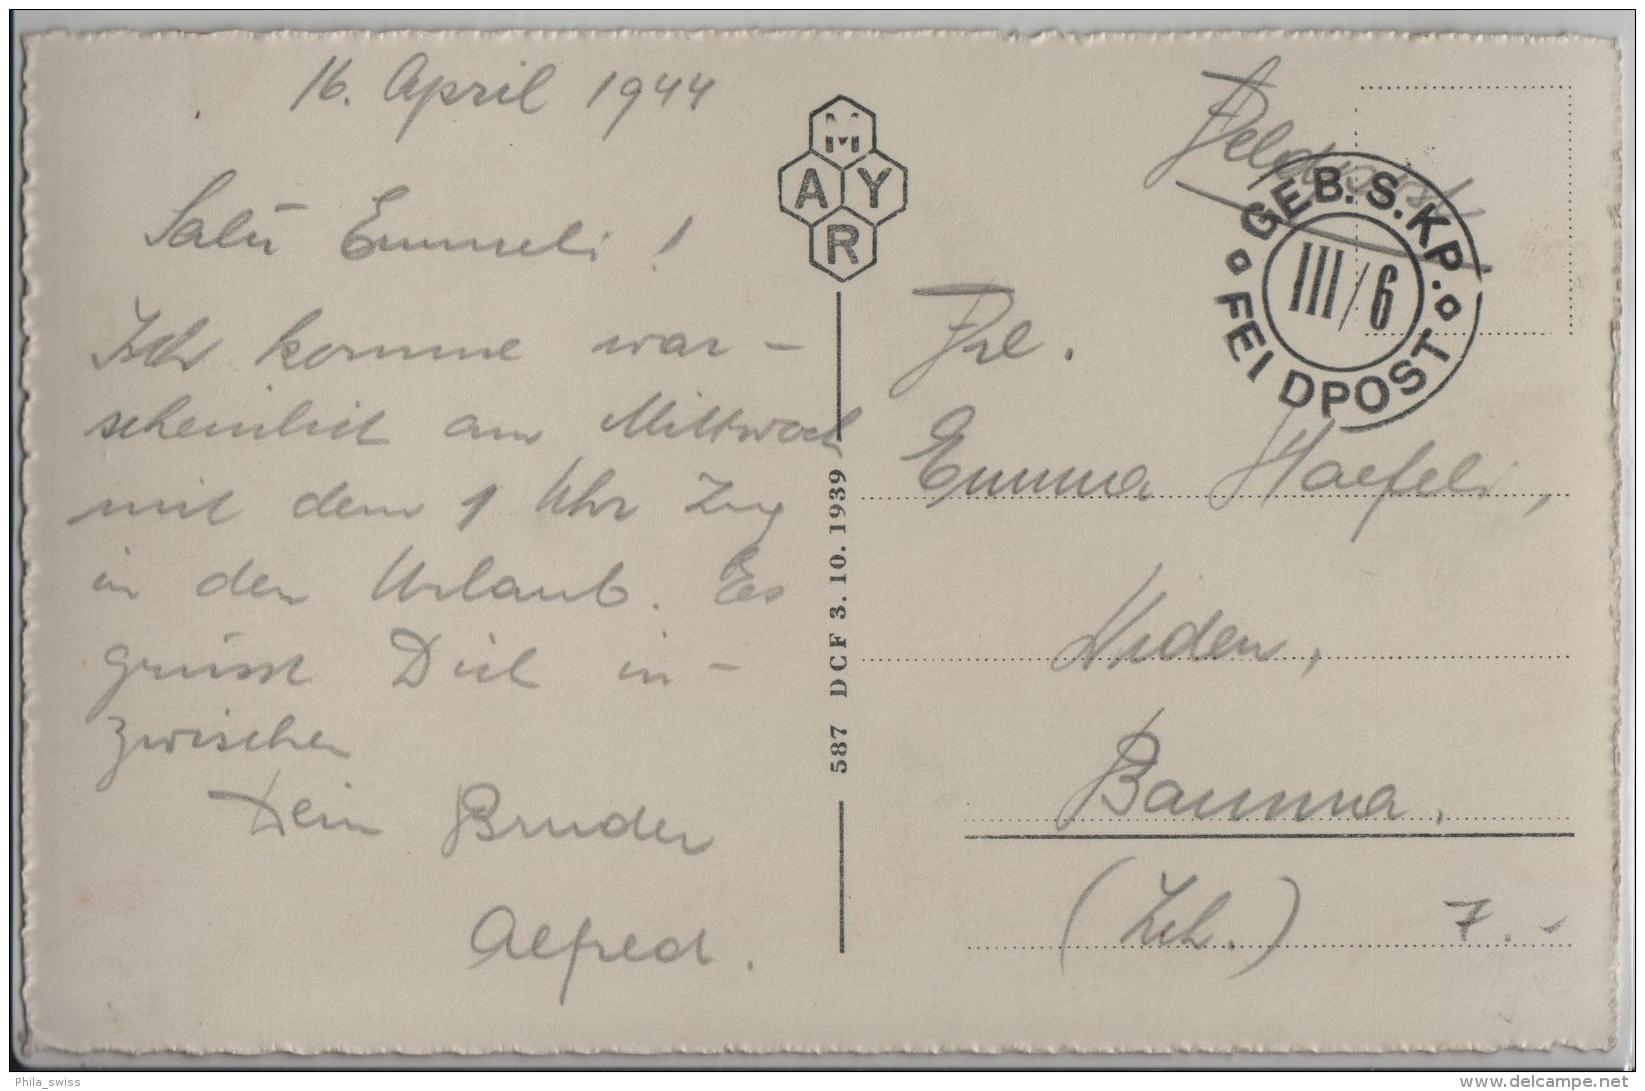 16. April 1944
Salü Emmeli!
Ich komme war-
scheinlich am Mittwoch
mit dem 1 Uhr Zug
in den Urlaub. Es
grüsst Dich in-
zwischen
Dein Bruder
Alfred.
MAYR
587 DCF 3. 10. 1939
Feldpost
GEB. S. KP.
III/6
FELDPOST
Frl.
Emma Haefeli,
Widen,
Bauma.
(Zch.)
7.-
Phila_swiss
www.delcampe.net